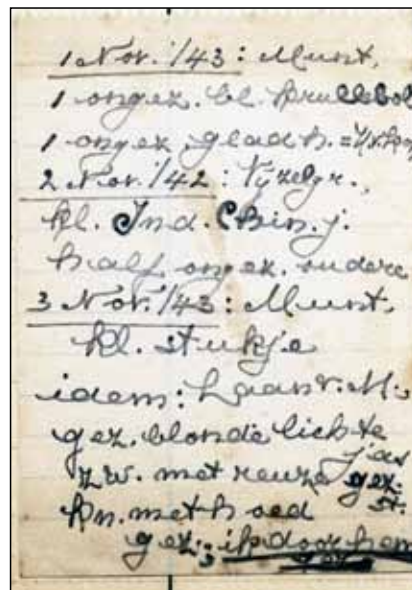 1 Nov. '43: Munt,
1 ongez. bl. krullebol
1 ongez. glad h. =
2 Nov. '42: Tijzelgr.,
kl. Ind. Chin. j.
half ongez. oudere
3 Nov. '43: Munt,
kl. stukje
idem: Laan v. M.,
gez. blonde lichte
jas
zw. met reuze gez.
kn. met hoed st.
gez.; ik door hem